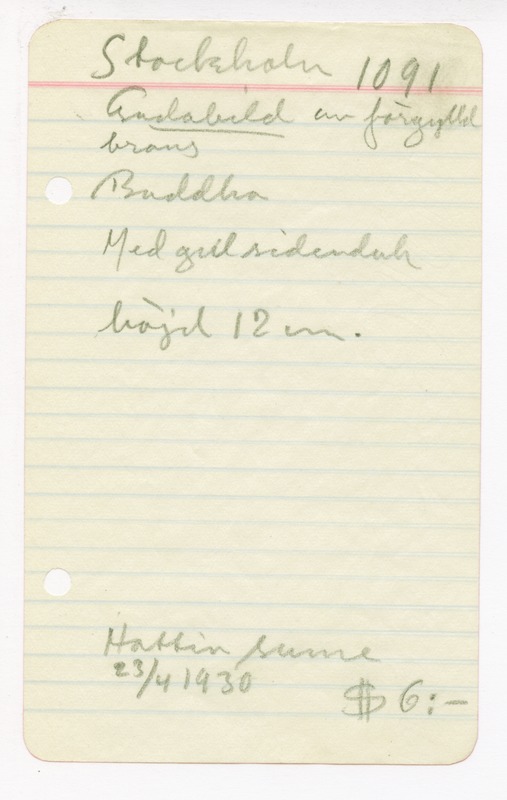 Stockholm 1091
Gudabild av förgylld
brons
Buddha
Med gul sidenduk
höjd 12 cm.
Hattin sume
23/4 1930
$ 6:-